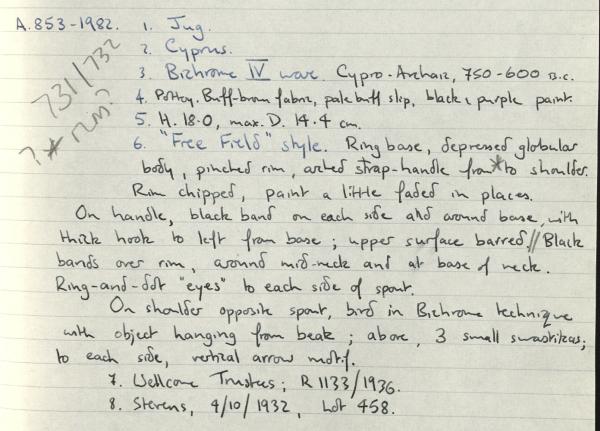 A.853-1982. 1. Jug.
2. Cyprus.
3. Bichrome IV ware. Cypro-Archaic, 750-600 B.C.
731/732
4. Pottery. Buff-brown fabric, pale buff slip, black & purple paint.
5. H. 18.0, max. D. 14.4 cm.
? * rim?
6. "Free Field" style. Ring base, depressed globular
body, pinched rim, arched strap-handle from * to shoulder.
Rim chipped, paint a little faded in places.
On handle, black band on each side and around base, with
thick hook to left from base; upper surface barred // Black
bands over rim, around mid-neck and at base of neck.
Ring-and-dot "eyes" to each side of spout.
On shoulder opposite spout, bird in Bichrome technique
with object hanging from beak; above, 3 small swastikas;
to each side, vertical arrow motif.
7. Wellcome Trustees; R 1133/1936.
8. Stevens, 4/10/1932, Lot 458.